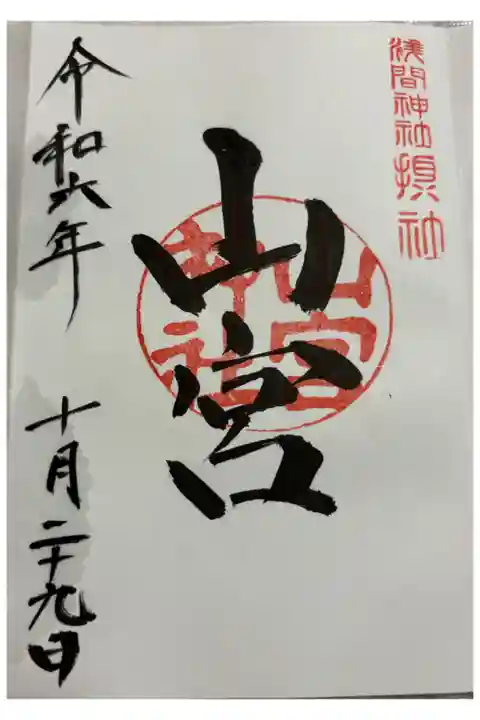 淺間神社摂社
山宮
山宮神社
令和六年 十月二十九日